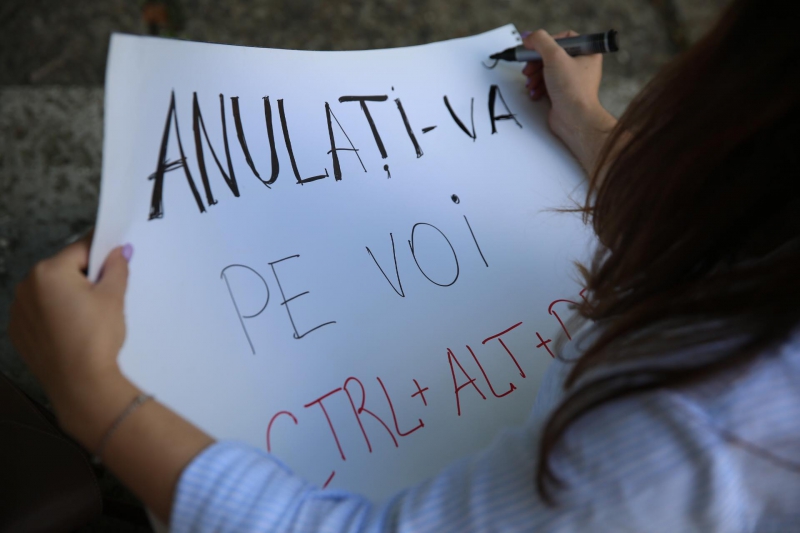 ANULAȚI-VA
PE VOI
CTRL+ALT+